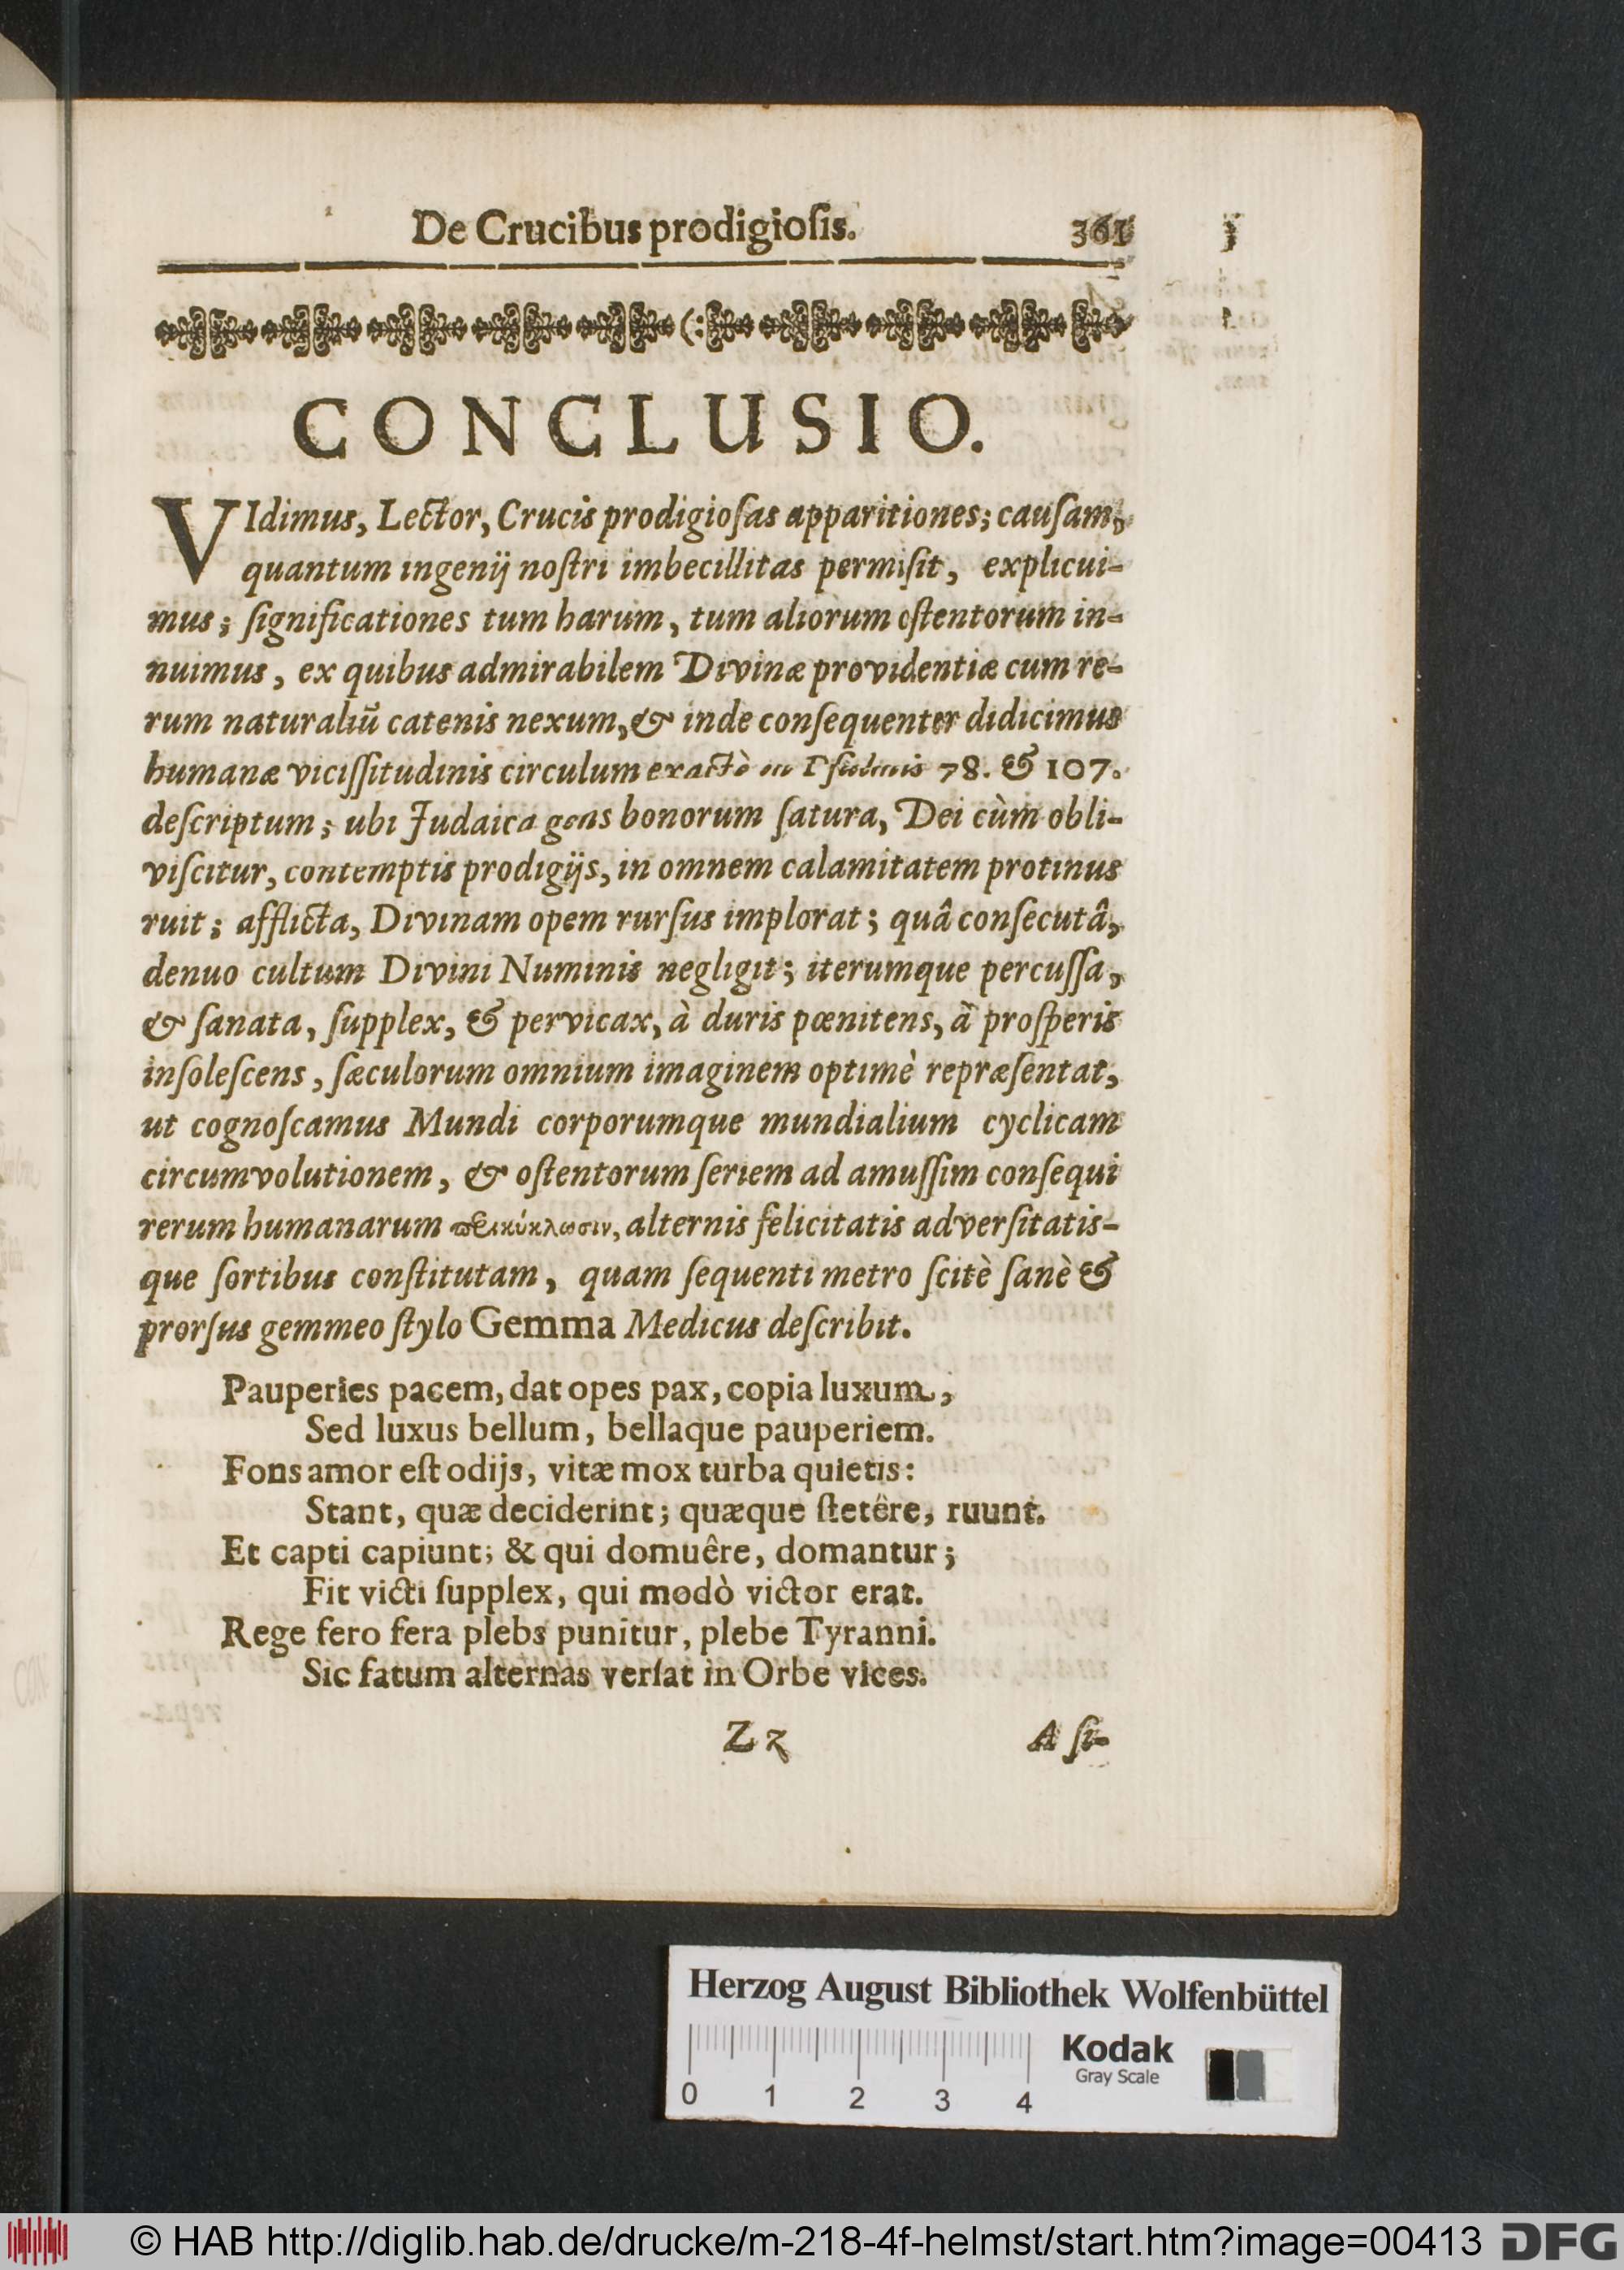 De Crucibus prodigioſis. 361
CONCLUSIO.
VIdimus, Lector, Crucis prodigioſas apparitiones; cauſam,
quantum ingenij noſtri imbecillitas permiſit, explicui-
mus; ſignificationes tum harum, tum aliorum oſtentorum in-
nuimus, ex quibus admirabilem Divinæ providentiæ cum re-
rum naturaliũ catenis nexum, & inde conſequenter didicimus
humanæ viciſſitudinis circulum exactè in Pſalmis 78. & 107.
deſcriptum; ubi Judaica gens bonorum ſatura, Dei cùm obli-
viſcitur, contemptis prodigijs, in omnem calamitatem protinus
ruit; afflicta, Divinam opem rurſus implorat; quâ conſecutâ,
denuo cultum Divini Numinis negligit; iterumque percuſſa,
& ſanata, ſupplex, & pervicax, à duris pœnitens, à proſperis
inſoleſcens, ſæculorum omnium imaginem optimè repræſentat,
ut cognoſcamus Mundi corporumque mundialium cyclicam
circumvolutionem, & oſtentorum ſeriem ad amuſſim conſequi
rerum humanarum περικύκλωσιν, alternis felicitatis adverſitatis-
que ſortibus conſtitutam, quam ſequenti metro ſcitè ſanè &
prorſus gemmeo ſtylo Gemma Medicus deſcribit.
Pauperies pacem, dat opes pax, copia luxum,
Sed luxus bellum, bellaque pauperiem.
Fons amor eſt odijs, vitæ mox turba quietis:
Stant, quæ deciderint; quæque ſtetêre, ruunt.
Et capti capiunt; & qui domuêre, domantur;
Fit victi ſupplex, qui modò victor erat.
Rege fero fera plebs punitur, plebe Tyranni.
Sic fatum alternas verſat in Orbe vices.
Zz A ſi-
Herzog August Bibliothek Wolfenbüttel
Kodak
Gray Scale
0 1 2 3 4
© HAB http://diglib.hab.de/drucke/m-218-4f-helmst/start.htm?image=00413 DFG